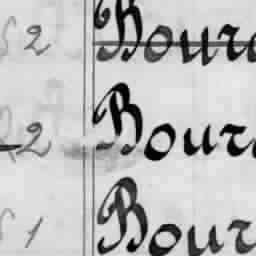 2 Bour
2 Bour
1 Bour